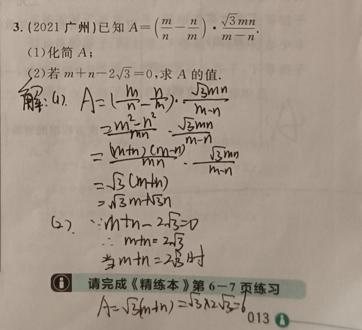 3. (2021 广州)已知 A=(m/n − n/m)·√3mn/(m−n).
(1)化简 A;
(2)若 m+n−2√3=0,求 A 的值.
解:(1). A=(m/n − n/m)·√3mn/(m−n)
=(m²−n²)/mn · √3mn/(m−n)
=(m+n)(m−n)/mn · √3mn/(m−n)
=√3(m+n)
=√3m+√3n
(2). ∵m+n−2√3=0
∴ m+n=2√3
当m+n=2√3时
请完成《精练本》第 6−7 页练习
A=√3(m+n)=√3×2√3=6
013